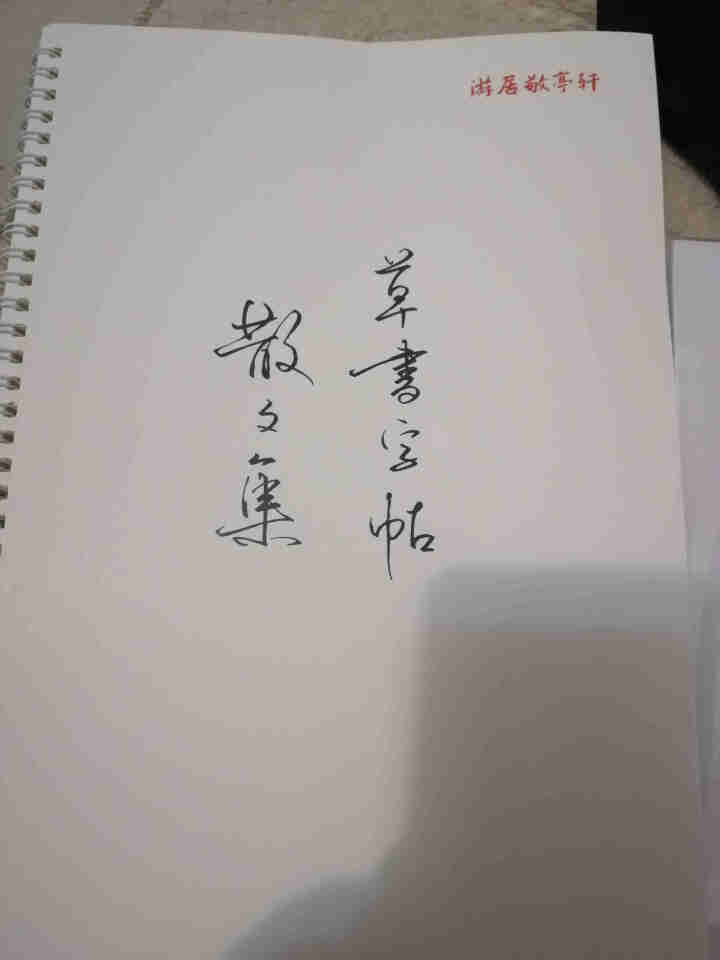 游居敬亭轩
草書字帖
散文集